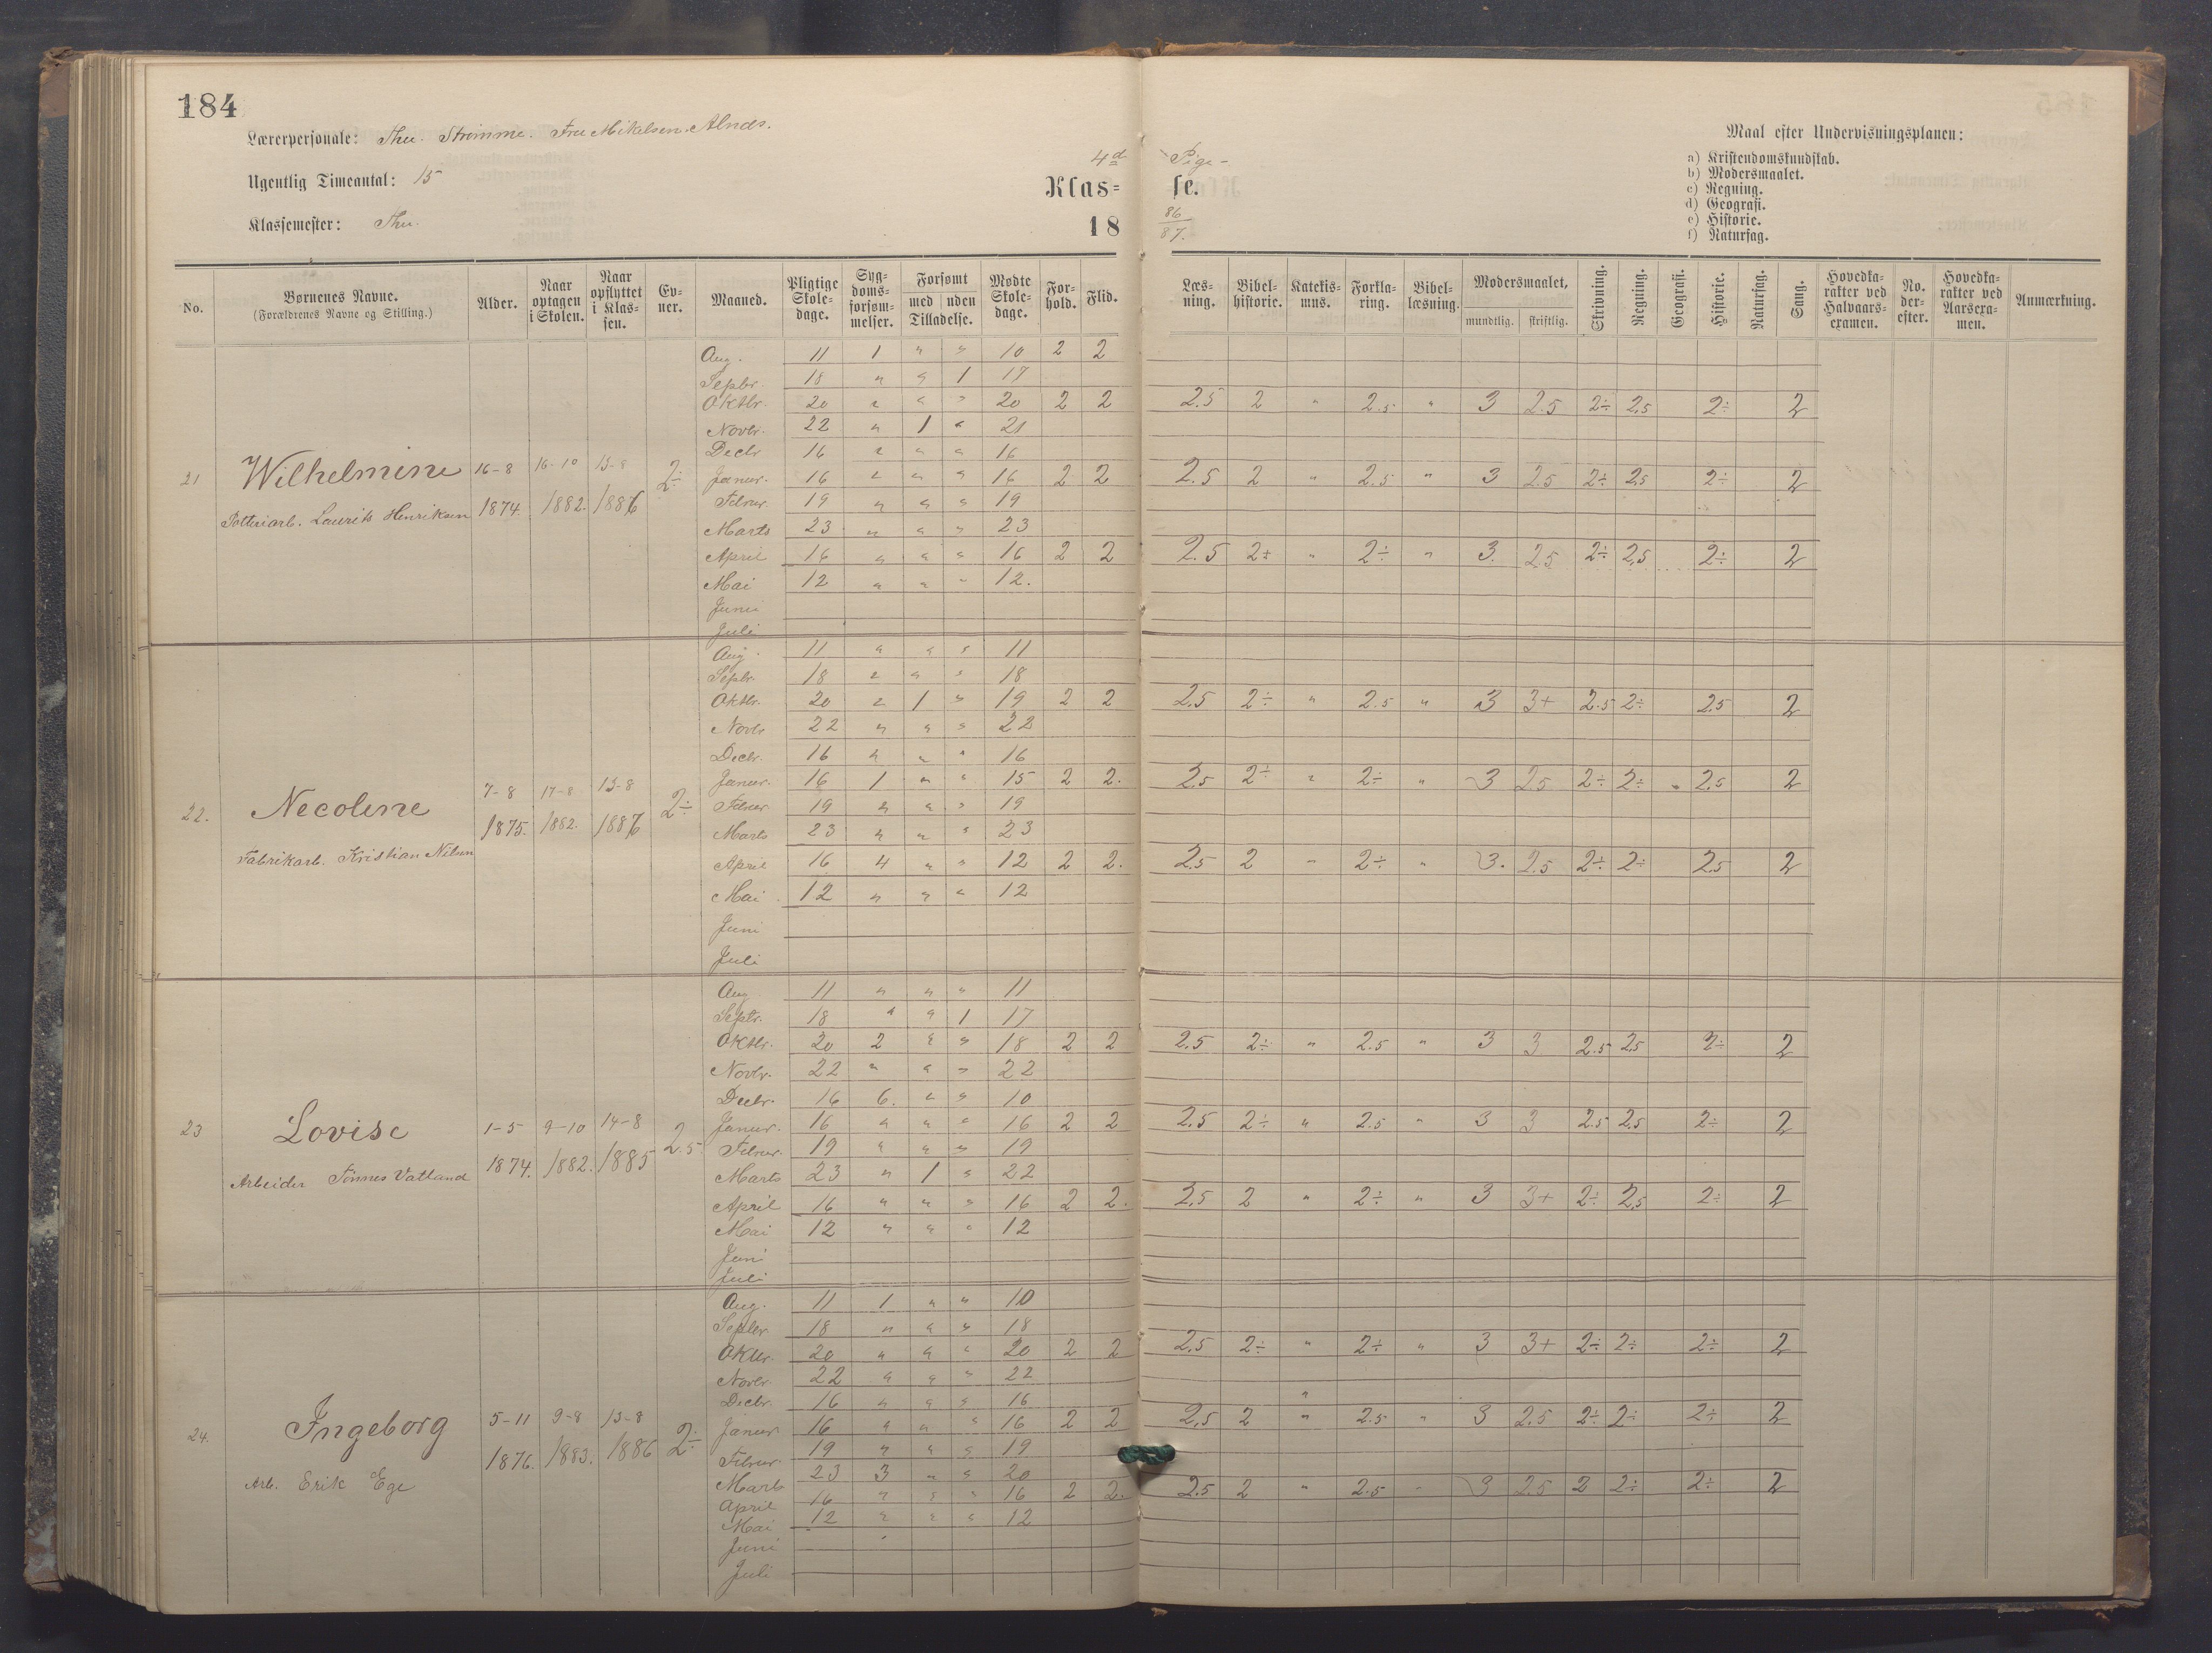 184
Lærerpersonale: Thu. Strømme. Fru Mikelsen. Alnæs.
Ugentlig Timeantal: 15
Klassemester: Thu.
4d Pige-
Klas= se.
18 86/87.
Maal efter Undervisningsplanen:
a) Kristendomskundskab.
b) Modersmaalet.
c) Regning.
d) Geografi.
e) Historie.
f) Naturfag.
No. Børnenes Navne. (Forældrenes Navne og Stilling.) Alder. Naar optagen i Skolen. Naar opflyttet i Klassen. Evner. Maaned. Pligtige Skoledage. Sygdomsforsømmelser. Forsømt med uden Tilladelse. Mødte Skoledage. Forhold. Flid. Læsning. Bibelhistorie. Katekismus. Forklaring. Bibellæsning. Modersmaalet, mundtlig. skriftlig. Skrivning. Regning. Geografi. Historie. Naturfag. Sang. Hovedkarakter ved Halvaarsexamen. No. derefter. Hovedkarakter ved Aarsexamen. Anmærkning.
21 Wilhelmine 16-8 1874. 16-10 1882. 13-8 1886 2÷
Potteriarb. Laurits Henriksen
Aug. 11 1 " " 10 2 2
Septbr. 18 " " 1 17
Oktbr. 20 " " " 20 2 2 2.5 2 " 2.5 " 3 2.5 2÷ 2.5 2÷ 2
Novbr. 22 " 1 " 21
Decbr. 16 " " " 16
Januar. 16 " " " 16 2 2 2.5 2 " 2.5 " 3 2.5 2÷ 2.5 2÷ 2
Februar. 19 " " " 19
Marts 23 " " " 23
April 16 " " " 16 2 2 2.5 2+ " 2÷ " 3. 2.5 2÷ 2.5 2÷ 2
Mai 12 " " " 12.
Juni
Juli
22. Necoline 7-8 1875. 17-8 1882. 13-8 1886 2÷
Fabrikarb. Kristian Nilsen
Aug. 11 " " " 11
Septbr. 18 " " " 18
Oktbr. 20 " 1 " 19 2 2 2.5 2÷ " 2.5 " 3 3+ 2.5 2÷ 2.5 2
Novbr. 22 " " " 22
Decbr. 16 " " " 16
Januar. 16 1 " " 15 2 2. 2.5 2÷ " 2÷ " 3 2.5 2÷ 2÷ " 2.5 2
Februar. 19 " " " 19
Marts 23 " " " 23
April 16 4 " " 12 2 2. 2.5 2 " 2÷ " 3. 2.5 2÷ 2÷ 2.5 2
Mai 12 " " " 12
Juni
Juli
23 Lovise 1-5 1874. 9-10 1882. 14-8 1885 2.5
Arbeider Tønnes Vatland
Aug. 11 " " " 11
Septbr. 18 " " 1 17
Oktbr. 20 2 " " 18 2 2 2.5 2÷ " 2.5 " 3 3 2.5 2.5 2÷ 2
Novbr. 22 " " " 22
Decbr. 16 6. " " 10
Januar. 16 " " " 16 2 2 2.5 2÷ " 2.5 " 3 3 2.5 2.5 2÷ 2
Februar. 19 " " " 19
Marts 23 " 1 " 22
April 16 " " " 16 2 2. 2.5 2 " 2÷ " 3 3+ 2÷ 2.5 2÷ 2
Mai 12 " " " 12
Juni
Juli
24. Ingeborg 5-11 1876. 9-8 1883. 13-8 1886 2÷
Arb. Erik Ege
Aug. 11 1 " " 10
Septbr. 18 " " " 18
Oktbr. 20 " " " 20 2 2 2.5 2÷ " 2÷ " 3 3+ 2÷ 2÷ 2÷ 2
Novbr. 22 " " " 22
Decbr. 16 " " " 16 "
Januar 16 " " " 16 2 2 2.5 2 " 2.5 " 3 2.5 2÷ 2÷ 2÷ 2
Februar. 19 " " " 19
Marts 23 3 " " 20
April 16 " " " 16 2 2. 2.5 2 " 2.5 " 3 2.5 2 2÷ 2÷ 2
Mai 12 " " " 12
Juni
Juli